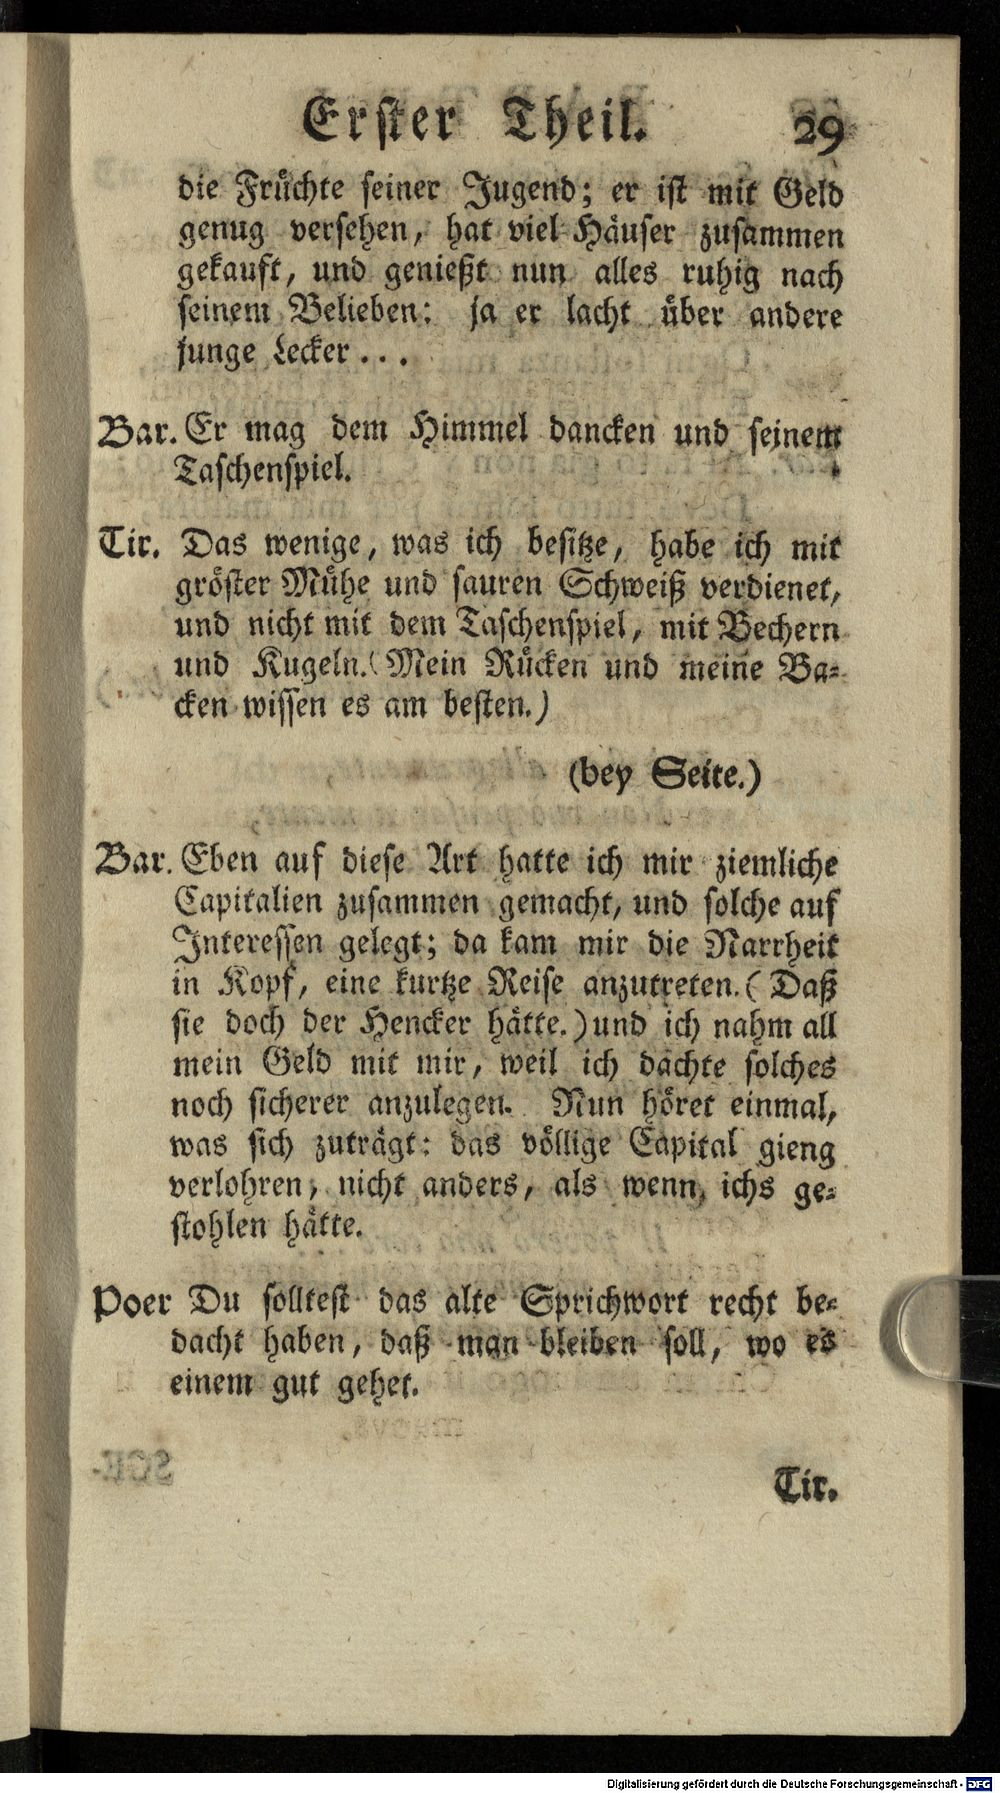 Erster Theil. 29
die Früchte seiner Jugend; er ist mit Geld
genug versehen, hat viel Häuser zusammen
gekauft, und genießt nun alles ruhig nach
seinem Belieben; ja er lacht über andere
junge Lecker...
Bar. Er mag dem Himmel dancken und seinem
Taschenspiel.
Tir. Das wenige, was ich besitze, habe ich mit
gröster Mühe und sauren Schweiß verdienet,
und nicht mit dem Taschenspiel, mit Bechern
und Kugeln. (Mein Rücken und meine Ba-
cken wissen es am besten.)
(bey Seite.)
Bar. Eben auf diese Art hatte ich mir ziemliche
Capitalien zusammen gemacht, und solche auf
Interessen gelegt; da kam mir die Narrheit
in Kopf, eine kurtze Reise anzutreten. (Daß
sie doch der Hencker hätte.) und ich nahm all
mein Geld mit mir, weil ich dachte solches
noch sicherer anzulegen. Nun höret einmal,
was sich zuträgt: das völlige Capital gieng
verlohren, nicht anders, als wenn ichs ge-
stohlen hätte.
Poer Du solltest das alte Sprichwort recht be-
dacht haben, daß man bleiben soll, wo es
einem gut gehet.
Tir.
Digitalisierung gefördert durch die Deutsche Forschungsgemeinschaft - DFG